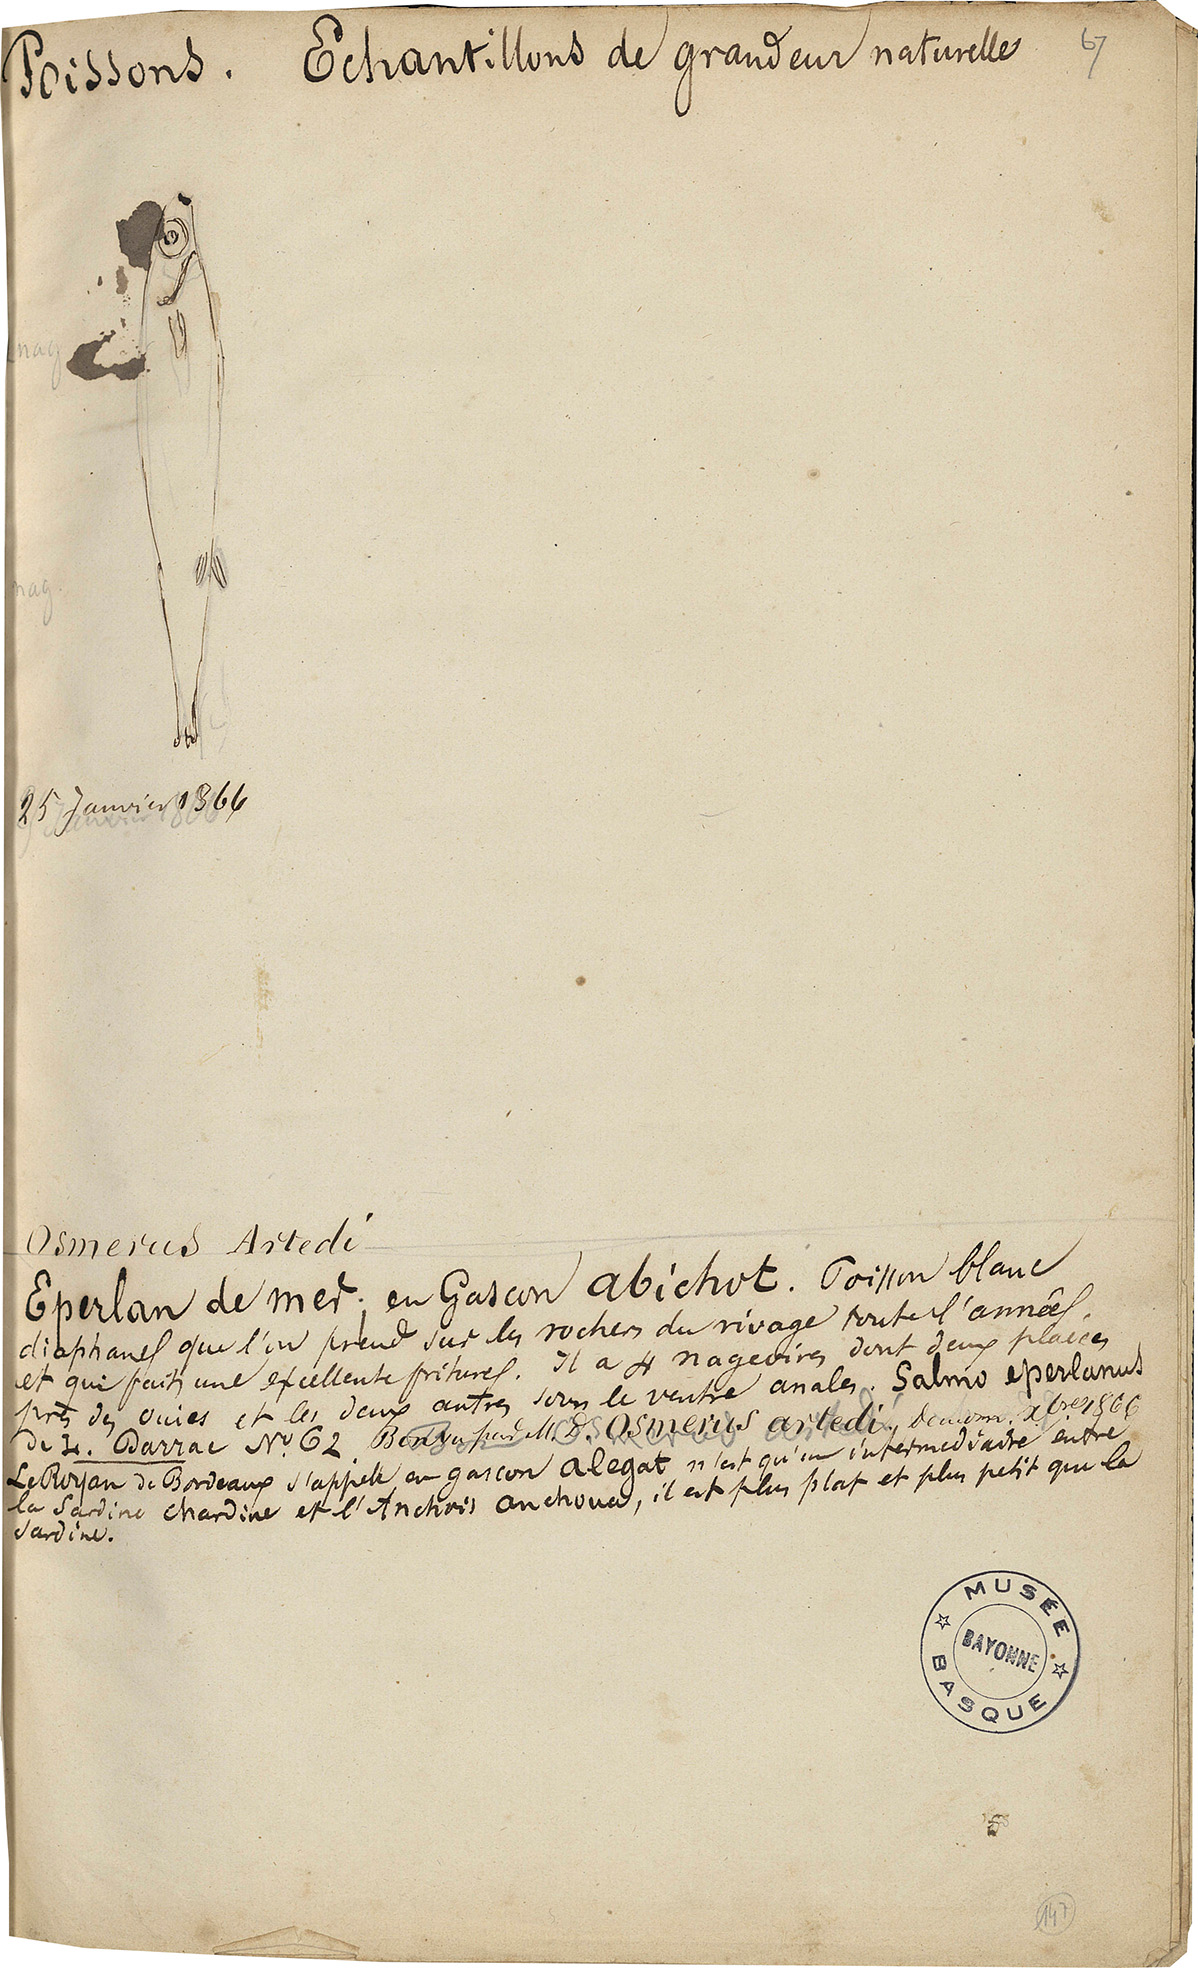 Poissons. Echantillons de grandeur naturelle 67
nag
nag.
25 Janvier 1866
Osmerus Artedi
Eperlan de mer; en Gascon abichot. Poisson blanc
diaphane que l'on prend sur les rochers du rivage toute l'année
et qui fait une excellente friture. Il a 4 nageoires dont deux placées
près des ouies et les deux autres sous le ventre anales. Salmo eperlanus
de L. Darrac No. 62 par M. D. Osmerus artedi, 1866
Le Royan de Bordeaux s'appelle en gascon alegat n'est qu'un intermediaire entre
la Sardine chardine et l'Anchois anchoua, il est plus plat et plus petit que la
sardine.
MUSÉE BASQUE
BAYONNE
147